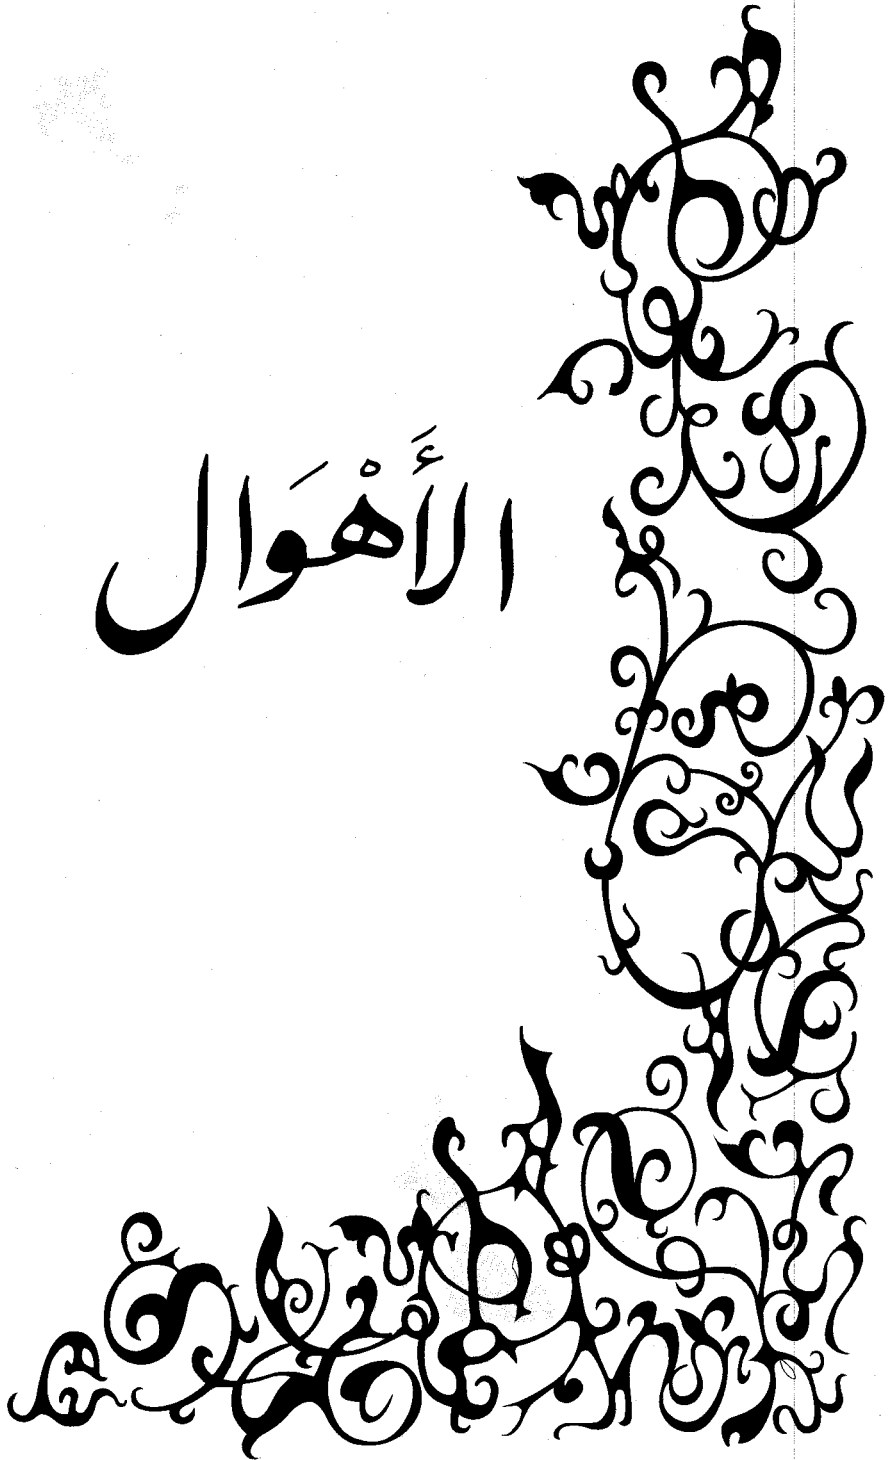 الأَهْوَال